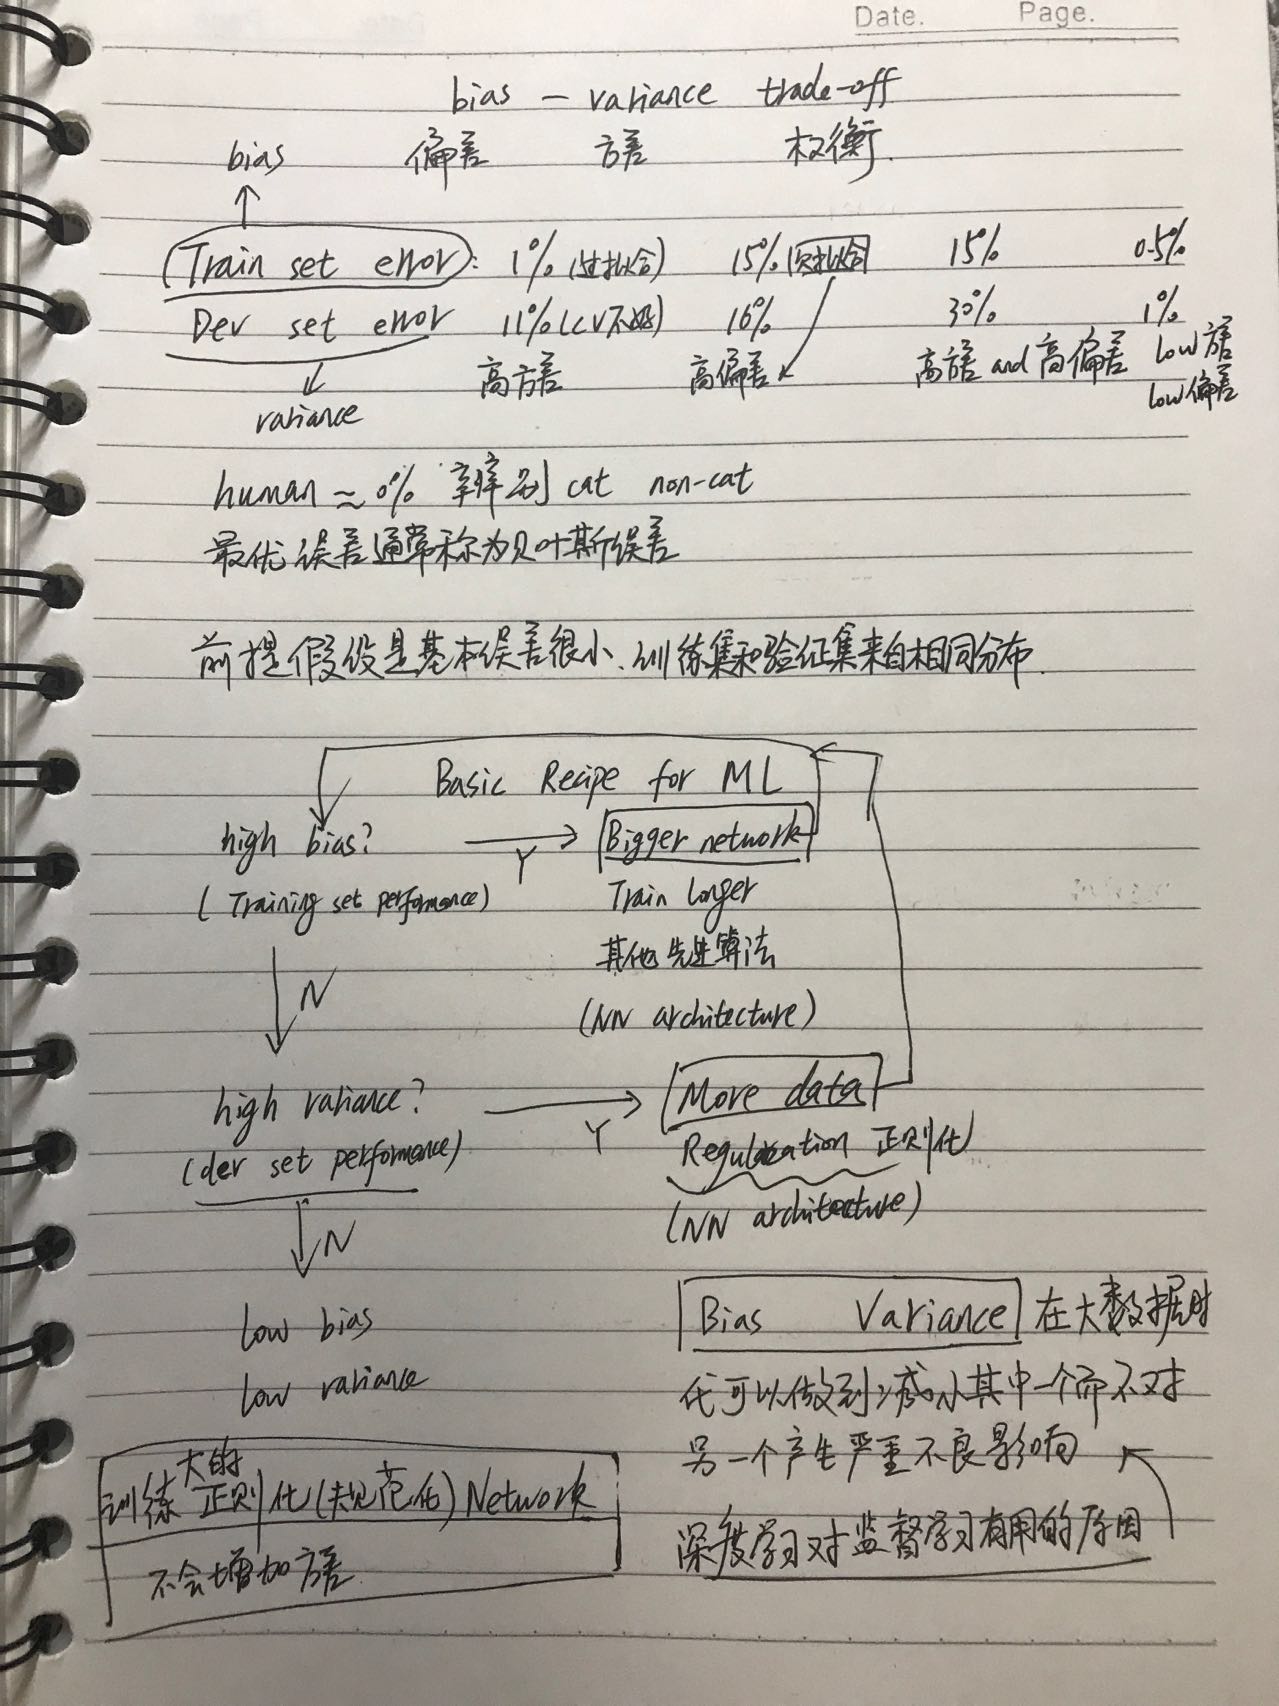 Date. Page.
bias - variance trade-off
bias 偏差 方差 权衡.
Train set error: 1% (过拟合) 15% (欠拟合) 15% 0.5%
Dev set error 11% (CV不好) 16% 30% 1%
高方差 高偏差 高方差 and 高偏差 low方差
variance low偏差
human ≈ 0% 辨别 cat non-cat
最优误差通常称为贝叶斯误差
前提假设是基本误差很小、训练集和验证集来自相同分布.
Basic Recipe for ML
high bias? Y Bigger network
(Training set performance) Train longer
其他先进算法
N (NN architecture)
high variance? Y More data
(dev set performance) Regularization 正则化
N (NN architecture)
low bias
low variance
Bias Variance 在大数据时
代可以做到减小其中一个而不对
另一个产生严重不良影响
深度学习对监督学习有用的原因
训练大的正则化(规范化) Network
不会增加方差